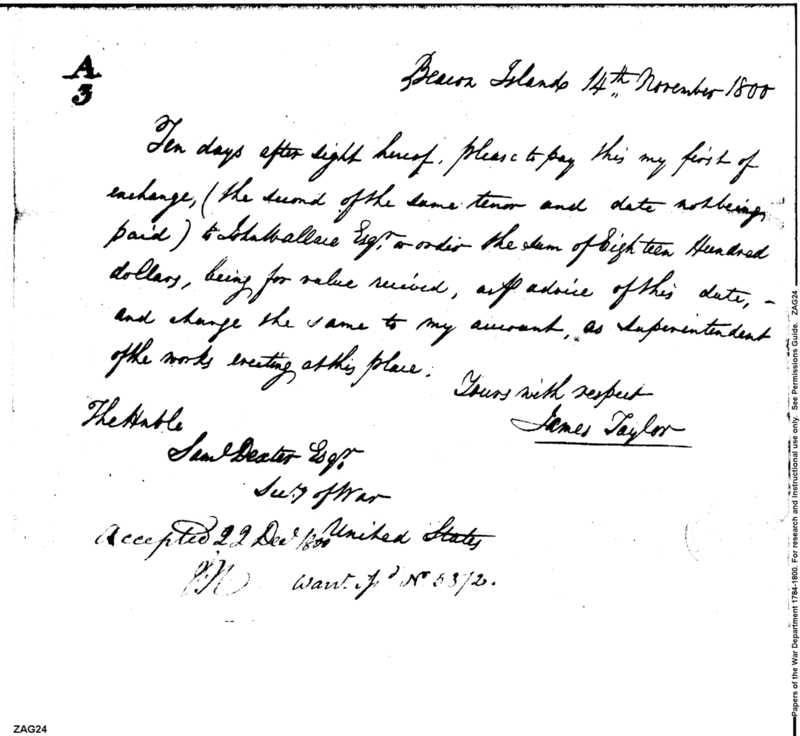 A
3
Beacon Islands 14th November 1800
Ten days after sight hereof, please to pay this my first of
exchange, (the second of the same tenor and date not being
paid) to John Wallace Esqr. or order the sum of Eighteen Hundred
dollars, being for value reciévd, as p advice of this date, -
and charge the same to my account, as Superintendent
of the works erecting at this place.
Yours with respect
James Taylor
The Honble
Saml. Dexter Esqr.
Secy. of War
United States
Accepted 22 Decr 1800
Warrt. No. 5372.
Papers of the War Department 1784-1800. For research and instructional use only. See Permissions Guide. ZAG24
ZAG24